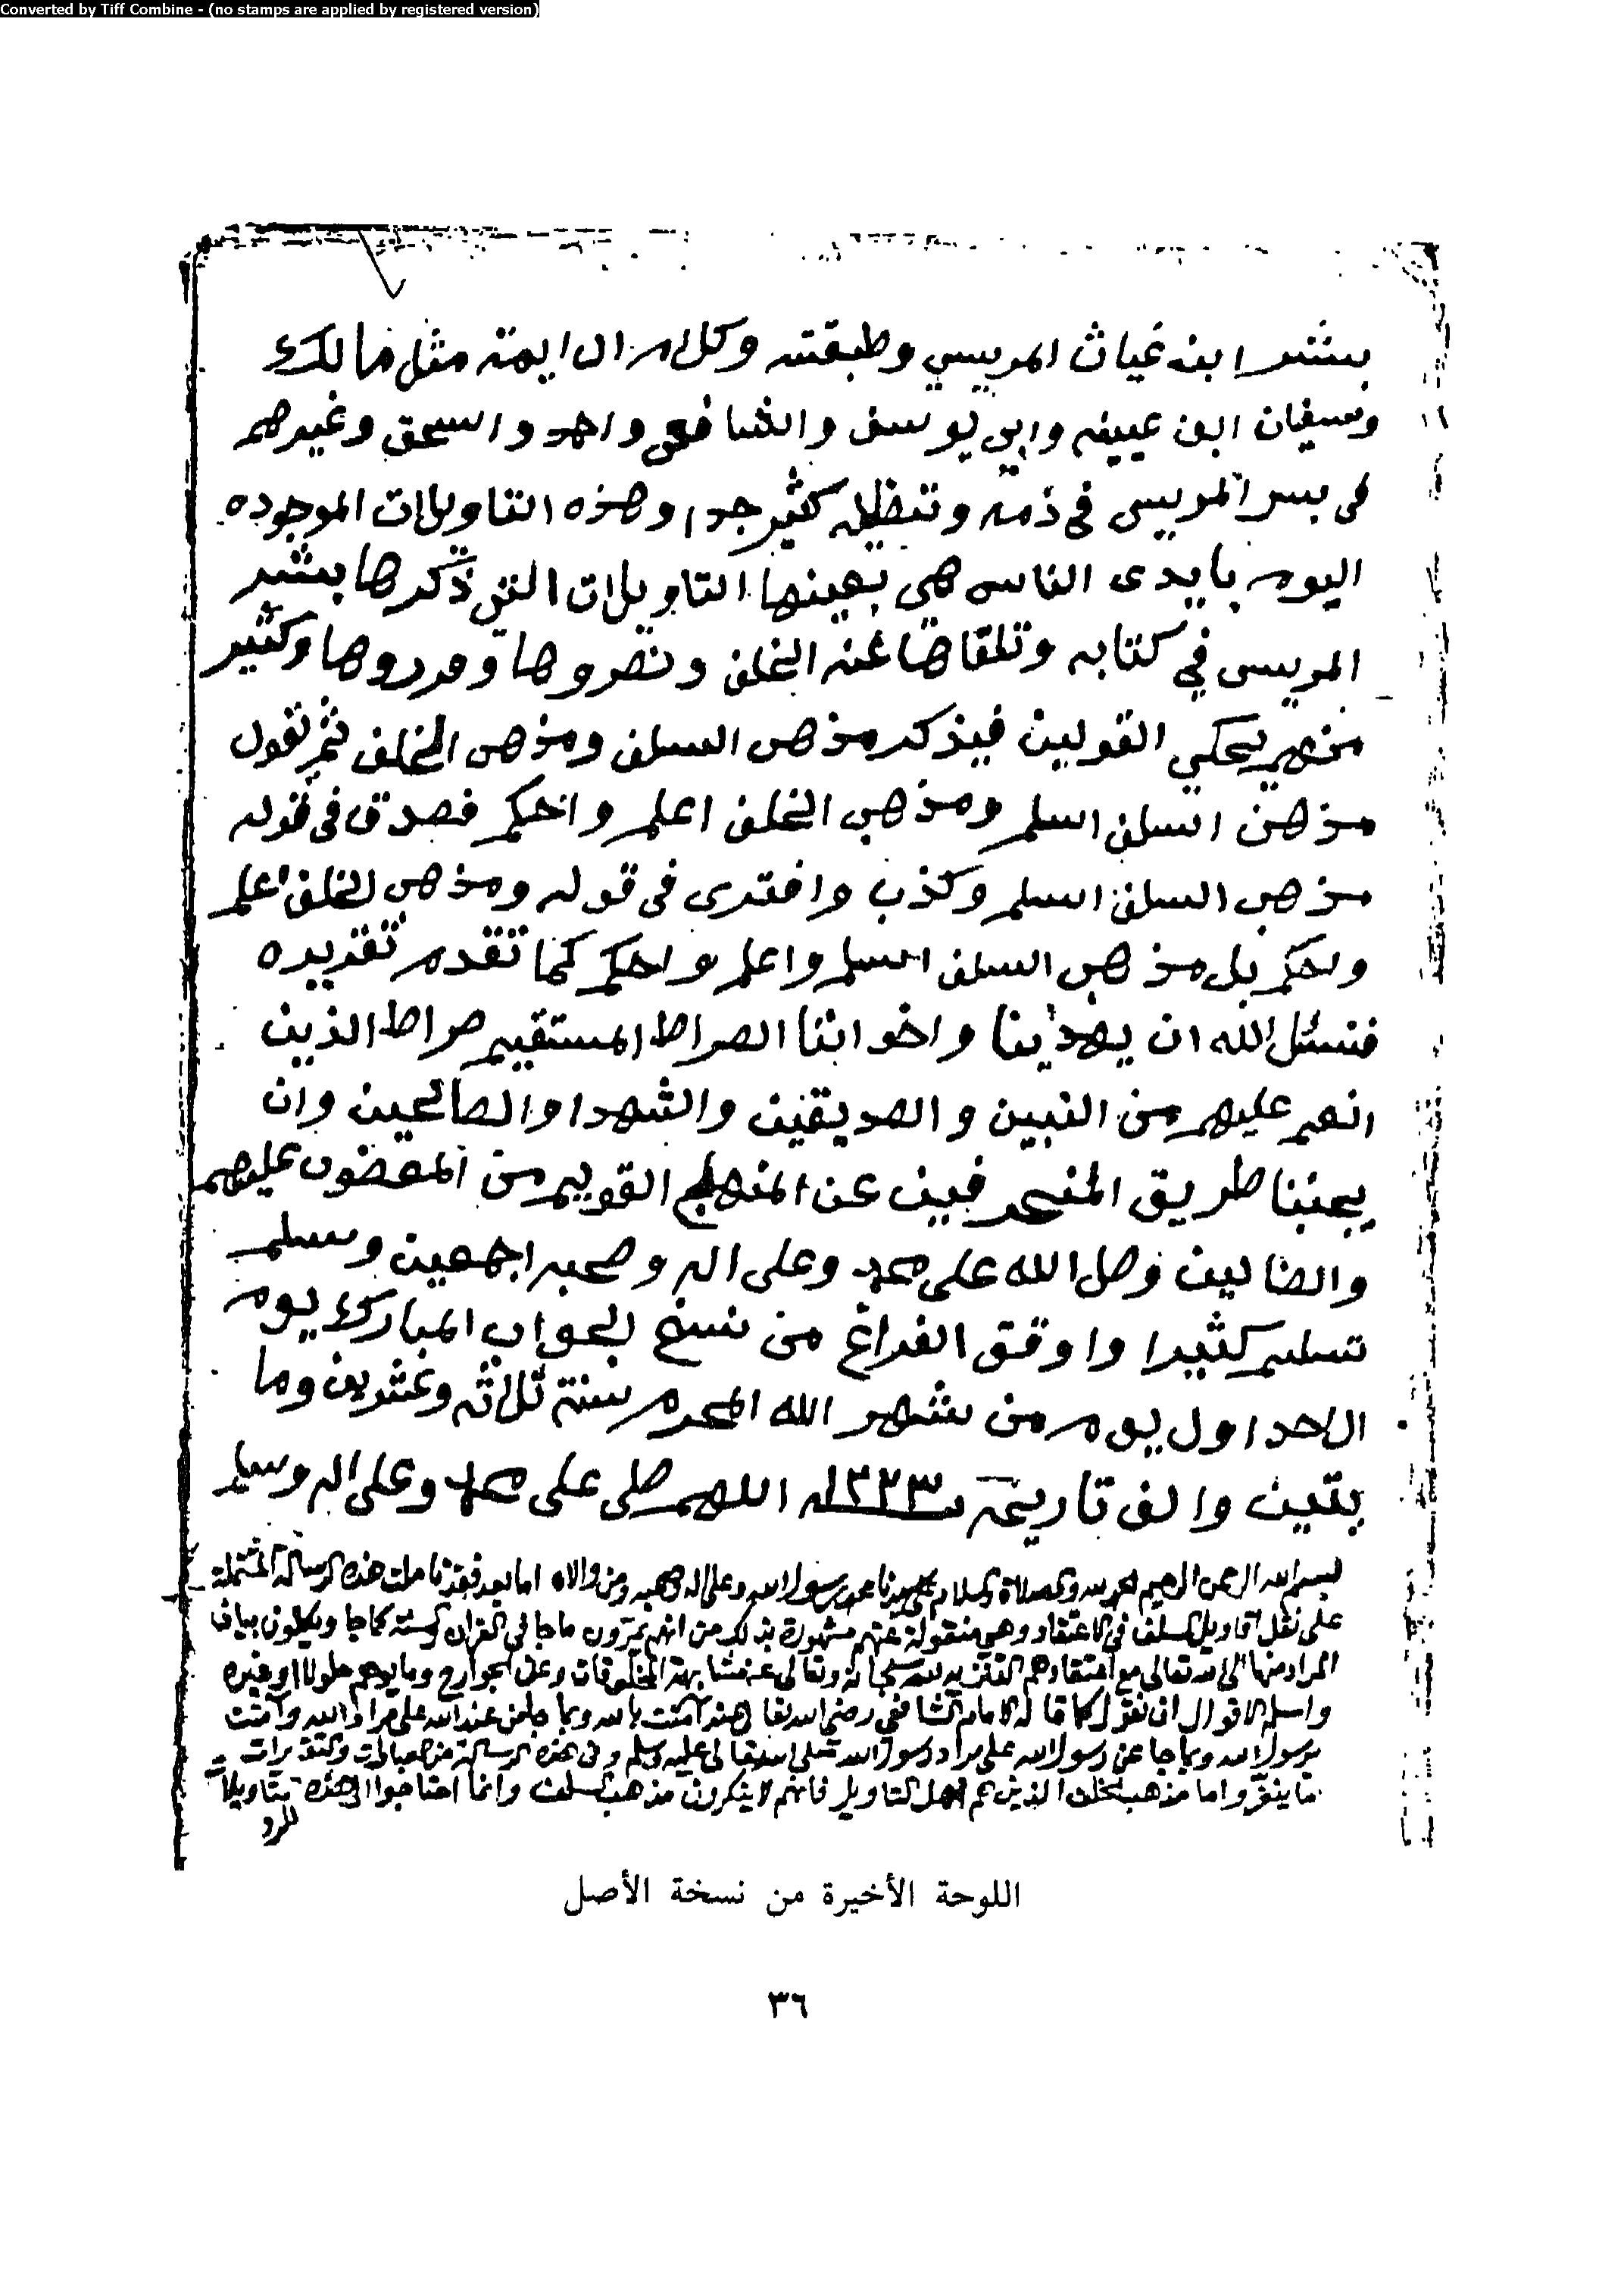 Converted by Tiff Combine - (no stamps are applied by registered version)
بشر ابن غياث المريسي وطبقته وكلام الايمة مثل مالك
وسفيان ابن عيينه وابي يوسف والشافعي واحمد واسحق وغيرهم
في بشر المريسي في ذمه وتضليله كثير جدا وهذه التاويلات الموجوده
اليوم بايدى الناس هي بعينها التاويلات التي ذكرها بشر
المريسي في كتابه وتلقاها عنه الخلف ونصروها وقرروها وكثير
منهم يحكي القولين فيذكر مذهب السلف ومذهب الخلف ثم تقول
مذهب السلف اسلم ومذهب الخلف اعلم واحكم فصدق في قوله
مذهب السلف اسلم وكذب وافترى في قوله ومذهب الخلف اعلم
واحكم بل مذهب السلف اسلم واعلم واحكم كما تقدم تقريره
فنسئل الله ان يهدينا واخواننا الصراط المستقيم صراط الذين
انعم عليهم من النبين والصديقين والشهدا والصالحين وان
يجنبنا طريق المنحرفين عن المنهاج القويم من المغضوب عليهم
والضالين وصل الله على محمد وعلى اله وصحبه اجمعين وسلم
تسليم كثيرا واوفق الفراغ من نسخ الجواب المبارك يوم
الاحد اول يوم من شهر الله المحرم سنة ثلاثه وعشرين وما
يتين والف تاريخه سنه ١٢٢٣ اللهم صلى على محمد وعلى اله وسلم
بسم الله الرحمن الرحيم الحمد لله والصلاة والسلام على سيدنا محمد رسول الله وعلى اله وصحبه ومن والاه اما بعد فقد تاملت هذه الرسالة المشتملة
على نقل اقاويل السلف في الاعتقاد وهي منقولة عنهم مشهورة بذلك من انهم يمرون ما جا في القران والسنة كما جا ويكلون بيان
المراد منها الى الله تعالى مع اعتقادهم التنزيه لله سبحانه وتعالى عن مشابهة المخلوقات وعن الجوارح وما يوهم حلولا او غيره
واسلم الاقوال ان نقول كما قاله الامام الشافعي رضي الله تعالى عنه آمنت بالله وبما جا من عند الله على مراد الله وآمنت
برسول الله وبما جا عن رسول الله على مراد رسول الله صلى الله تعالى عليه وسلم وفي هذه الرسالة من العبارات والتقديرات
ما ينفر واما مذهب الخلف الذين هم اهل التاويل فانهم لا ينكرون مذهب السلف وانما احتاجوا الى هذه
للرد
اللوحة الأخيرة من نسخة الأصل
٣٦